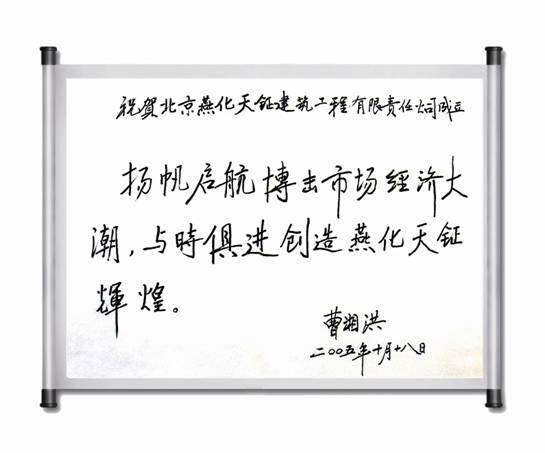 祝賀北京燕化天钲建筑工程有限责任公司成立
扬帆启航搏击市场经济大
潮，与時俱进创造燕化天钲
輝煌。
曹湘洪
二〇〇五年十月十八日